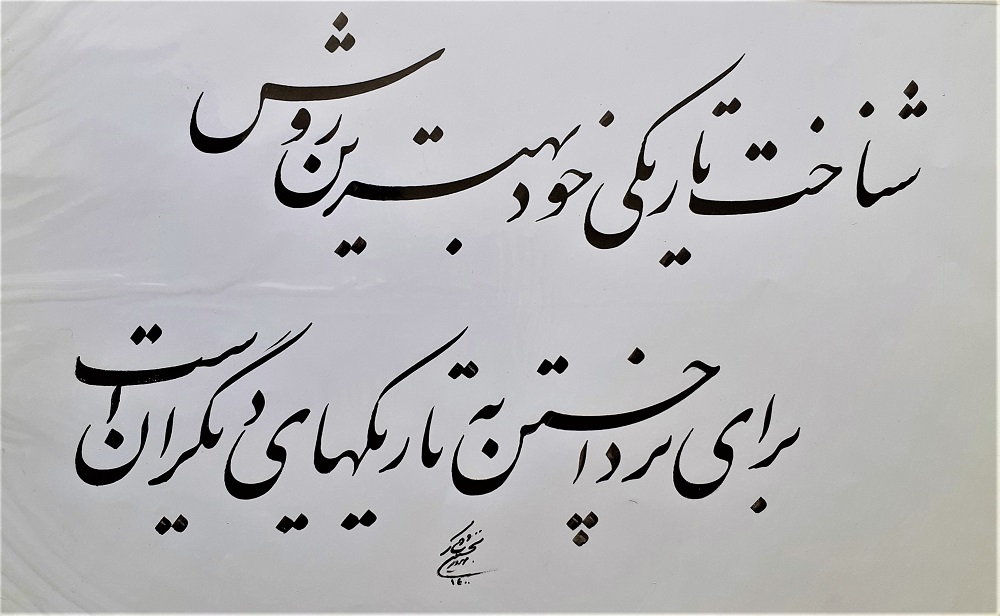 شناخت تاریکی خود بهترین روش
برای پرداختن به تاریکیهای دیگران است
۱۴۰۰